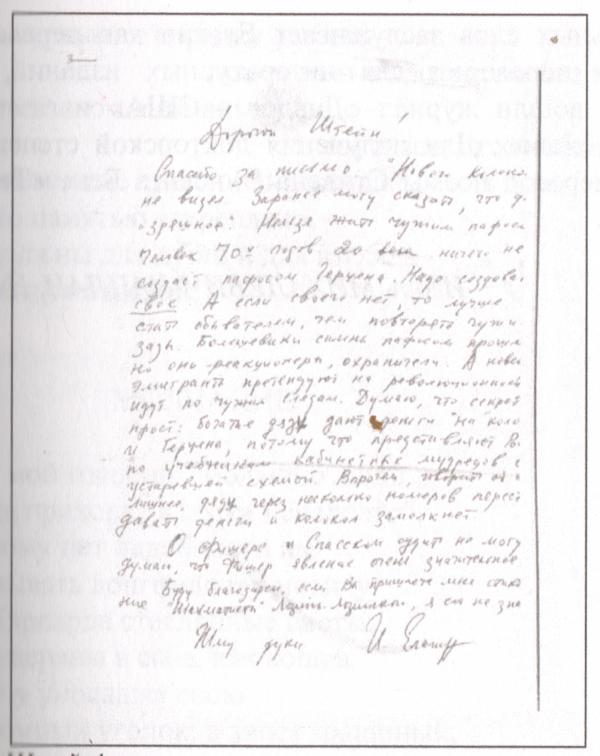 Дорогой Штейн!
Спасибо за письмо "Нового колоко
не видел. Заранее могу сказать, что
Нельзя жить чужим пафосо
Человек 70х годов 20 века ничего не
создаст пафосом Герцена. Надо создава
своё. А если своего нет то лучше
стать обывателем, чем повторять чужи.
зады. Большевики сильны пафосом прошло
но они-реакционеры, охранители. А новые
эмигранты претендуют на революционность
идут по чужим следам. Думаю, что секрет
прост: богатые дяди дают деньги на коло
и Герцена, потому что представляют
по учебникам кабинетных мудрецов с
устаревшей схемой. Впрочем
лишнее, дяди через несколько номеров перест
давать деньги и колокол замолкнет.
О Фишере и Спасском судить не могу
Думаю, что Фишер явление очень значительное.
Буду благодарен если Вы пришлете мне стихо
ние я его не зна
Жму руки